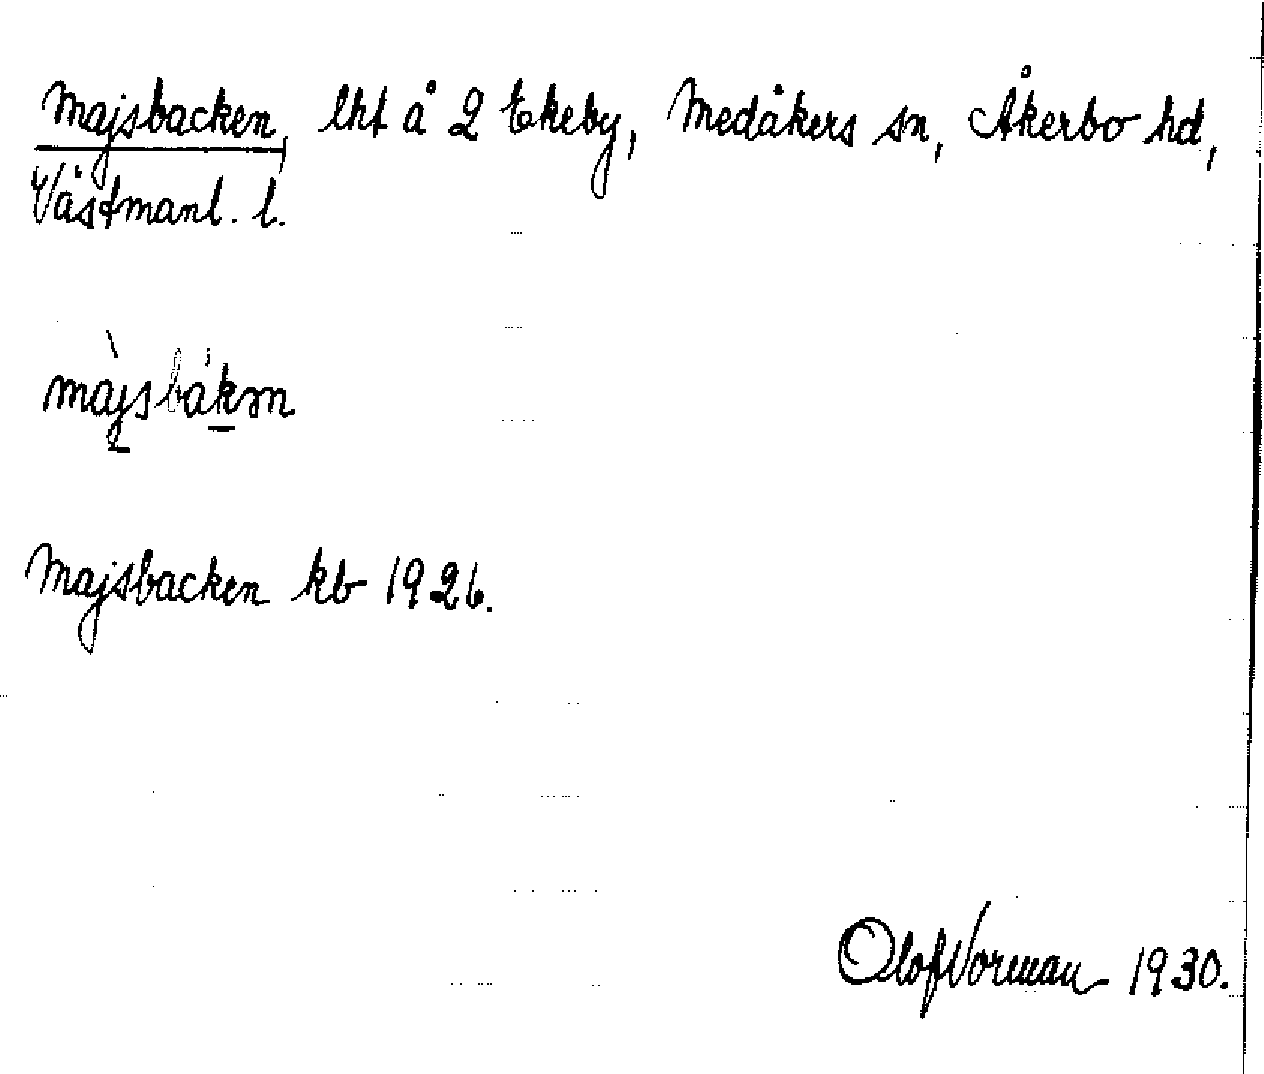 Majsbacken, lht å 2 Ekeby, Medåkers sn, Åkerbo hd,
Västmanl. l.
màjsbákm
Majsbacken kb 1926.
Olof Norman 1930.